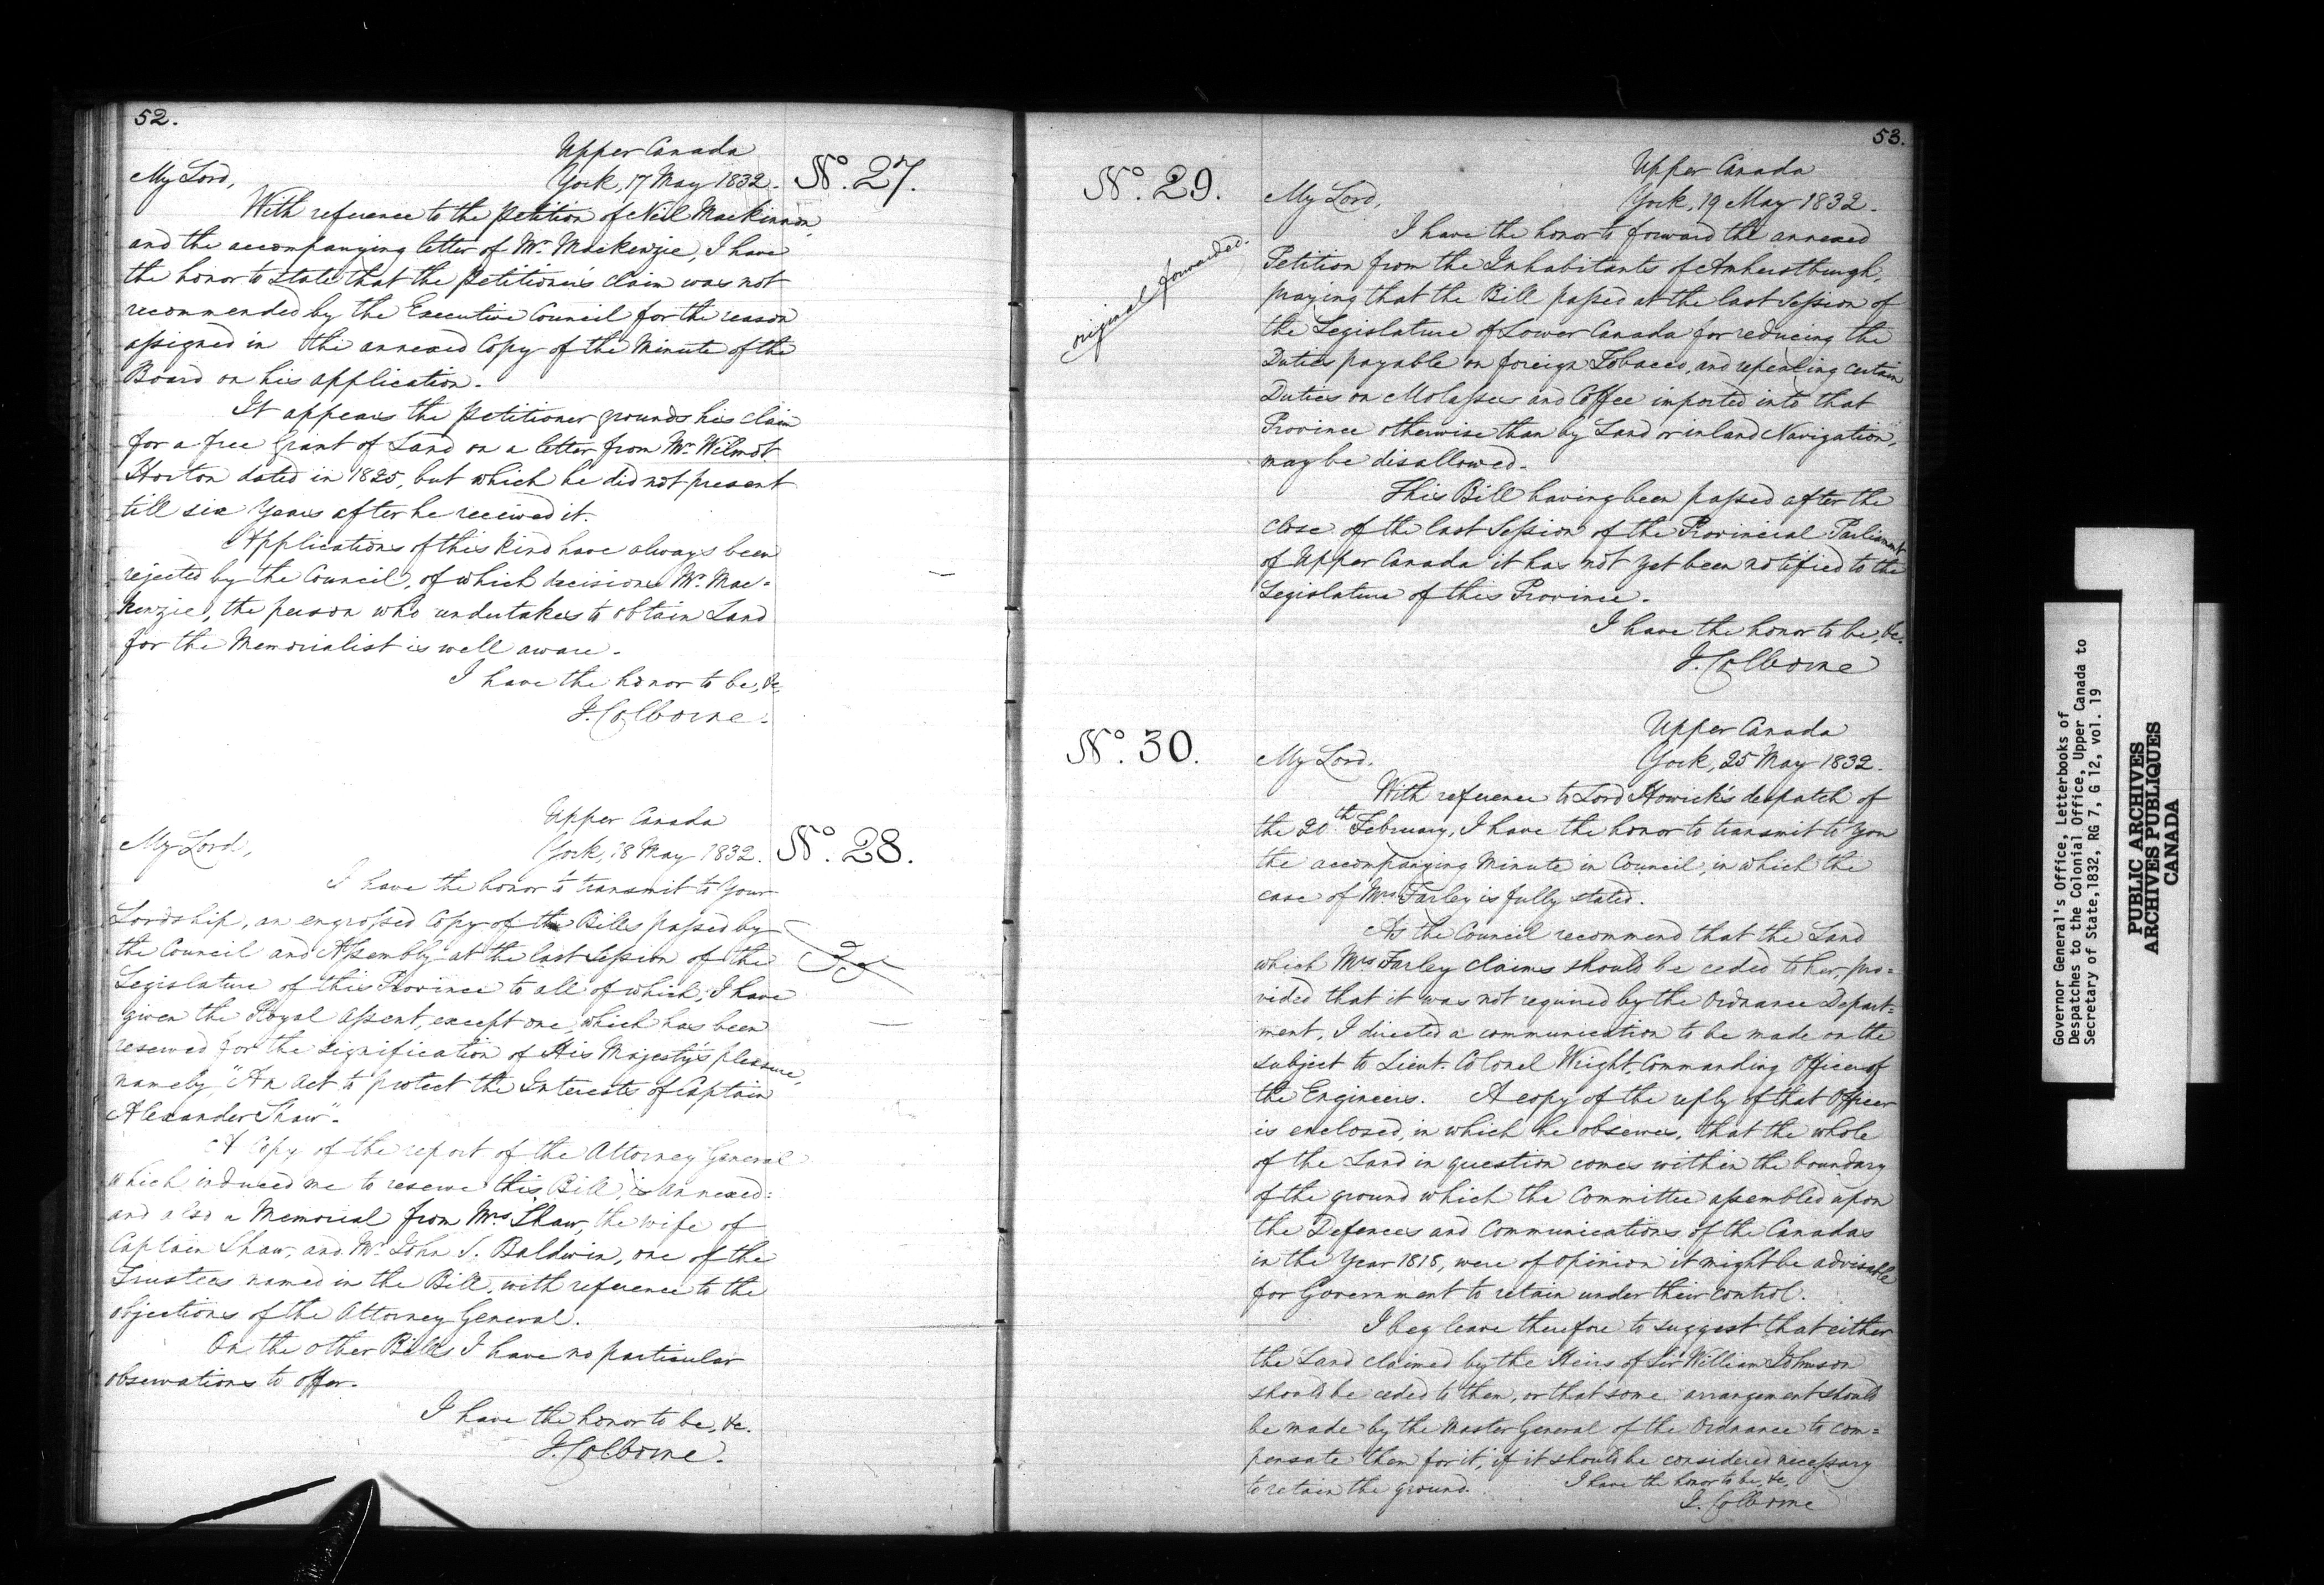 52.
Upper Canada
My Lord, York, 17 May 1832. No. 27.
With reference to the petition of Neil Mackinnon,
and the accompanying letter of Mr. Mackenzie, I have
the honor to state that the petitioner's claim was not
recommended by the Executive Council for the reason
assigned in the annexed Copy of the Minute of the
Board on his application.
It appears the petitioner grounds his claim
for a free Grant of Land on a letter from Mr. Wilmot
Horton dated in 1825, but which he did not present
till six Years after he received it.
Applications of this kind have always been
rejected by the Council, of which decisions Mr. Mac-
kenzie, the person who undertakes to obtain Land
for the Memorialist is well aware.
I have the honor to be, &c.
J. Colborne.
Upper Canada
My Lord, York, 18 May 1832. No. 28.
I have the honor to transmit to Your
Lordship, an engrossed Copy of the Bills passed by
the Council and Assembly at the last Session of the
Legislature of this Province to all of which, I have
given the Royal assent, except one, which has been
reserved for the signification of His Majesty's pleasure,
namely, "An Act to protect the Interests of Captain
Alexander Shaw".
A Copy of the report of the Attorney General
which induced me to reserve this Bill, is annexed:
and also a Memorial from Mrs. Shaw, the wife of
Captain Shaw, and Mr. John S. Baldwin, one of the
Trustees named in the Bill, with reference to the
objections of the Attorney General.
On the other Bills I have no particular
observations to offer.
I have the honor to be, &c.
J. Colborne.
53.
Upper Canada
No. 29. My Lord, York, 19 May 1832.
original forwarded.
I have the honor to forward the annexed
Petition from the Inhabitants of Amherstburgh,
praying that the Bill passed at the last Session of
the Legislature of Lower Canada for reducing the
Duties payable on foreign Tobacco, and repealing certain
Duties on Molasses and Coffee imported into that
Province otherwise than by Land or inland Navigation",
may be disallowed.
This Bill having been passed after the
close of the last Session of the Provincial Parliament
of Upper Canada it has not yet been notified to the
Legislature of this Province.
I have the honor to be, &c.
J. Colborne
Upper Canada
No. 30. My Lord. York, 25 May 1832.
With reference to Lord Howick's despatch of
the 20th February, I have the honor to transmit to You
the accompanying Minute in Council, in which the
case of Mrs Farley is fully stated.
As the Council recommend that the Land
which Mrs Farley claims should be ceded to her, pro=
vided that it was not required by the Ordnance Depart=
ment, I directed a communication to be made on the
subject to Lieut. Colonel Wright, Commanding Officer of
the Engineers. A copy of the reply of that Officer
is enclosed, in which he observes, that the whole
of the Land in question comes within the boundary
of the ground which the Committee assembled upon
the Defences and Communications of the Canadas
in the Year 1818, were of opinion it might be advisable
for Government to retain under their control.
I beg leave therefore to suggest that either
the Land claimed by the Heirs of Sir William Johnson
should be ceded to them, or that some arrangement should
be made by the Master General of the Ordnance to com=
pensate them for it, if it should be considered necessary
to retain the ground. I have the honor to be, &c.
J. Colborne
Governor General's Office, Letterbooks of
Despatches to the Colonial Office, Upper Canada to
Secretary of State,1832, RG 7, G 12, vol. 19
PUBLIC ARCHIVES
ARCHIVES PUBLIQUES
CANADA